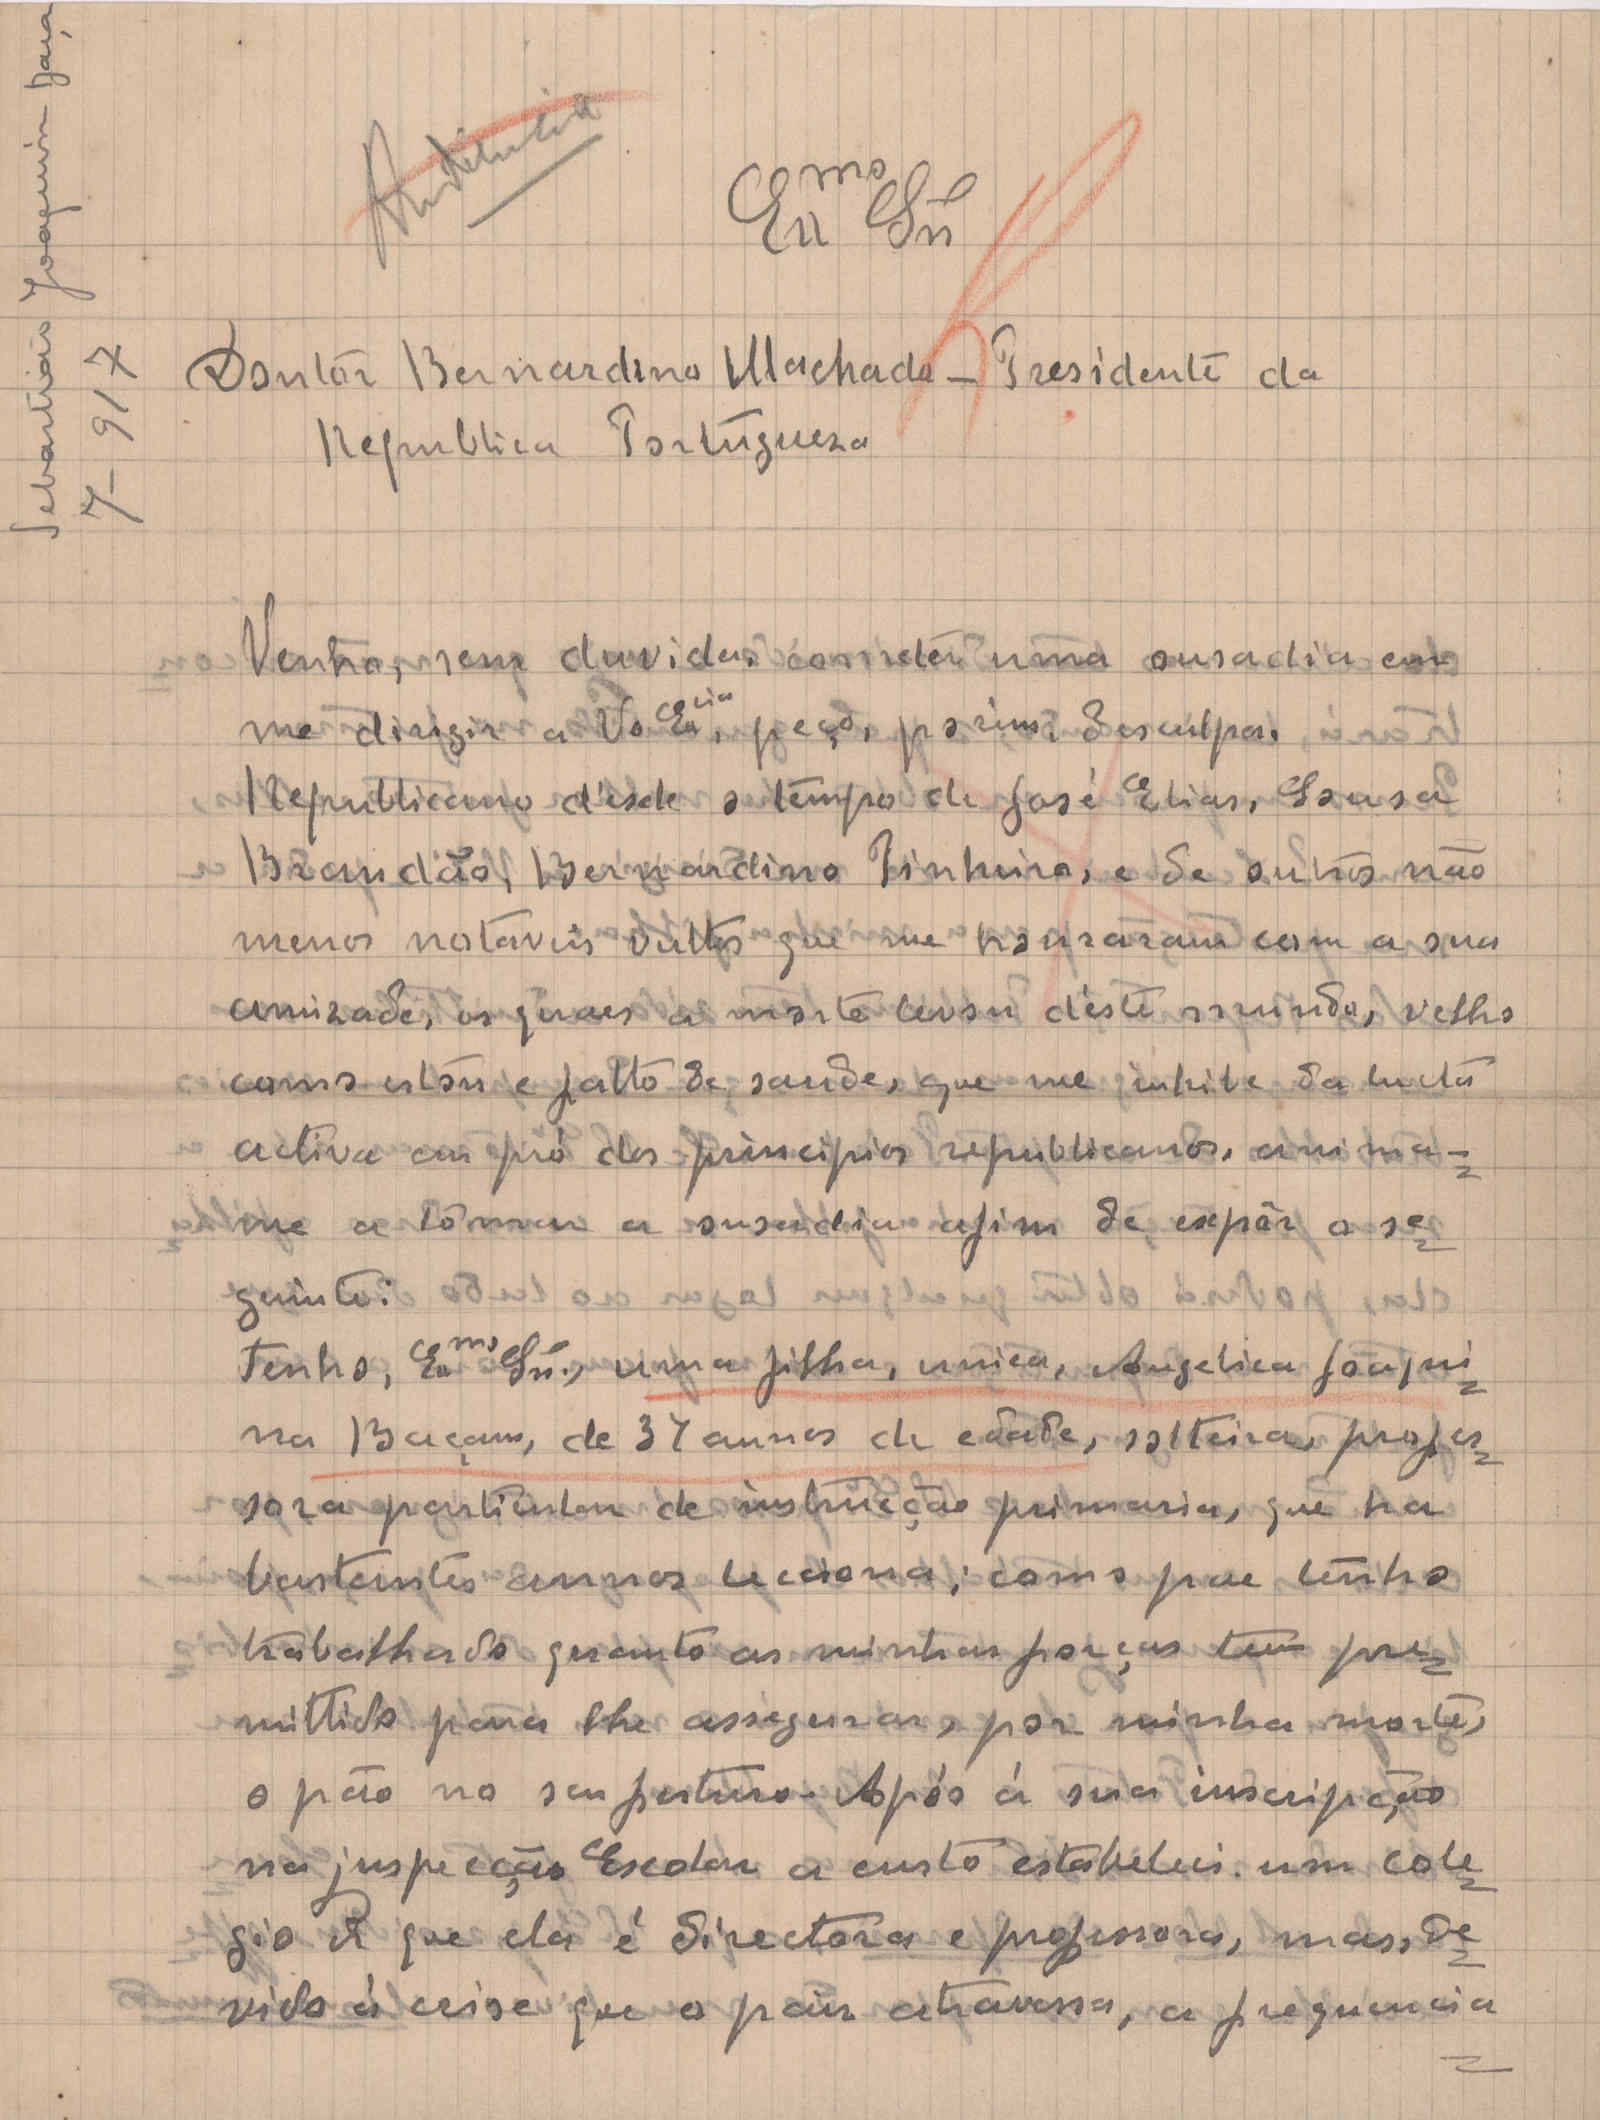 Sebastião Joaquim Baçã
7-917
Audiencia
Exmo Snr
Doutôr Bernardino Machado - Presidente da
Republica Portugueza
Venho, sem duvida, cometêr uma ousadia em
me dirigir a V. Excia, peço, porêm, desculpa.
Republicano dêsde o têmpo de José Elias, Sousa
Brandão, Bernardino Pinheiro, e de outros não
menos notaveis vultos que me honraram com a sua
amizade, os quaes a morte levou dêste mundo, velho
como estou e falto de saude, que me inhibe da lucta
activa em pró dos principios republicanos, anima-
me a tômar a ousadia afim de expôr o se=
guinte:
Tenho, Exmo Snr., uma filha, unica, Angelica Joaqui=
na Baçam, de 37 annos de edade, solteira, profes=
sora particular de instrucção primaria, que ha
bastantes annos lecciona; como pae tenho
trabalhado quanto as minhas forças tem pre=
mittido para lhe assegurar, por minha morte,
o pão no seu futuro. Após á sua inscripção
na juspecção Escolar a custo estabeleci um cole=
gio d que ela é directora e professora, mas, de=
vido á crise que o pais atravessa, a frequencia